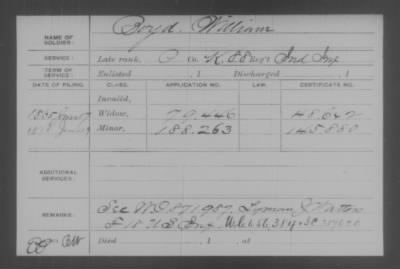 NAME OF SOLDIER: Boyd, William
SERVICE: Late rank, Co. K. 88 Reg't Ind Inf
TERM OF SERVICE: Enlisted , 1 Discharged , 1
DATE OF FILING. CLASS. APPLICATION NO. LAW. CERTIFICATE NO.
Invalid,
Widow, 79.446 48.642
Minor, 188.263 145.880
ADDITIONAL SERVICES:
REMARKS: See W.O. 871987. Lyman J.
F 18 U S Inf
Died , 1 , at